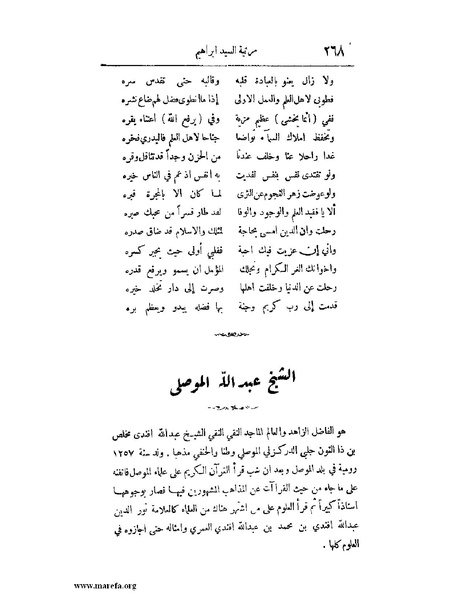 ٢٦٨ مرتبة السيد ابراهيم
ولا زال يعنو بالعبادة قلبه وقالبه حتى تقدس سره
فطوبى لاهل العلم والعمل الاولى إذا ما انطوى فضل لهم ضاع نشره
ففي (إنما يخشى) عظيم مزية وفي (يرفع الله) اعتناء يقره
وتخفظ املاك السماء تواضعا جناحا لاهل العلم فالبدري فخره
غدا راحلا عنا وخلف عندنا من الحزن وجداً قد تثاقل وقره
ولو تفتدى نفس بنفس لفديت به انفس اذ عم في الناس خيره
ولو عوضت زهر النجوم عن الثرى لما كان الا بالمجرة قبره
ألا يا فقيد العلم والوجود والوفا لقد طار قسراً من محبك صبره
رحلت وان الدين امسى بحاجة لمثلك والاسلام قد ضاق صدره
واني إن عزيت فيك احبة فقلبي أولى حيث يجبر كسره
واخوانك الغر الكرام ونجلك المؤمل ان يسمو ويرفع قدره
رحلت عن الدنيا وخلفت اهلها وصرت إلى دار تخلد خيره
قدمت إلى رب كريم وجنة بها فضله يبدو ويعظم بره
الشيخ عبد الله الموصلى
هو الفاضل الزاهد والعالم الماجد التقي النقي الشيخ عبدالله افندى مخلص
بن ذا النون جلبي الدركزلي الموصلي وطنا والحنفي مذهبا . ولد سنة ١٢٥٧
رومية في بلد الموصل وبعد ان شب قرأ القرآن الكريم على علماء الموصل فاتقنه
على ما جاء من حيث القراآت عن المذاهب المشهورين فيها فصار بوجوهها
استاذاً كبيراً ثم قرأ العلوم على من اشتهر هناك من العلماء كالعلامة نور الدين
عبدالله افندي بن محمد بن عبدالله افندي العمري وامثاله حتى اجازوه في
العلوم كلها .
www.marefa.org